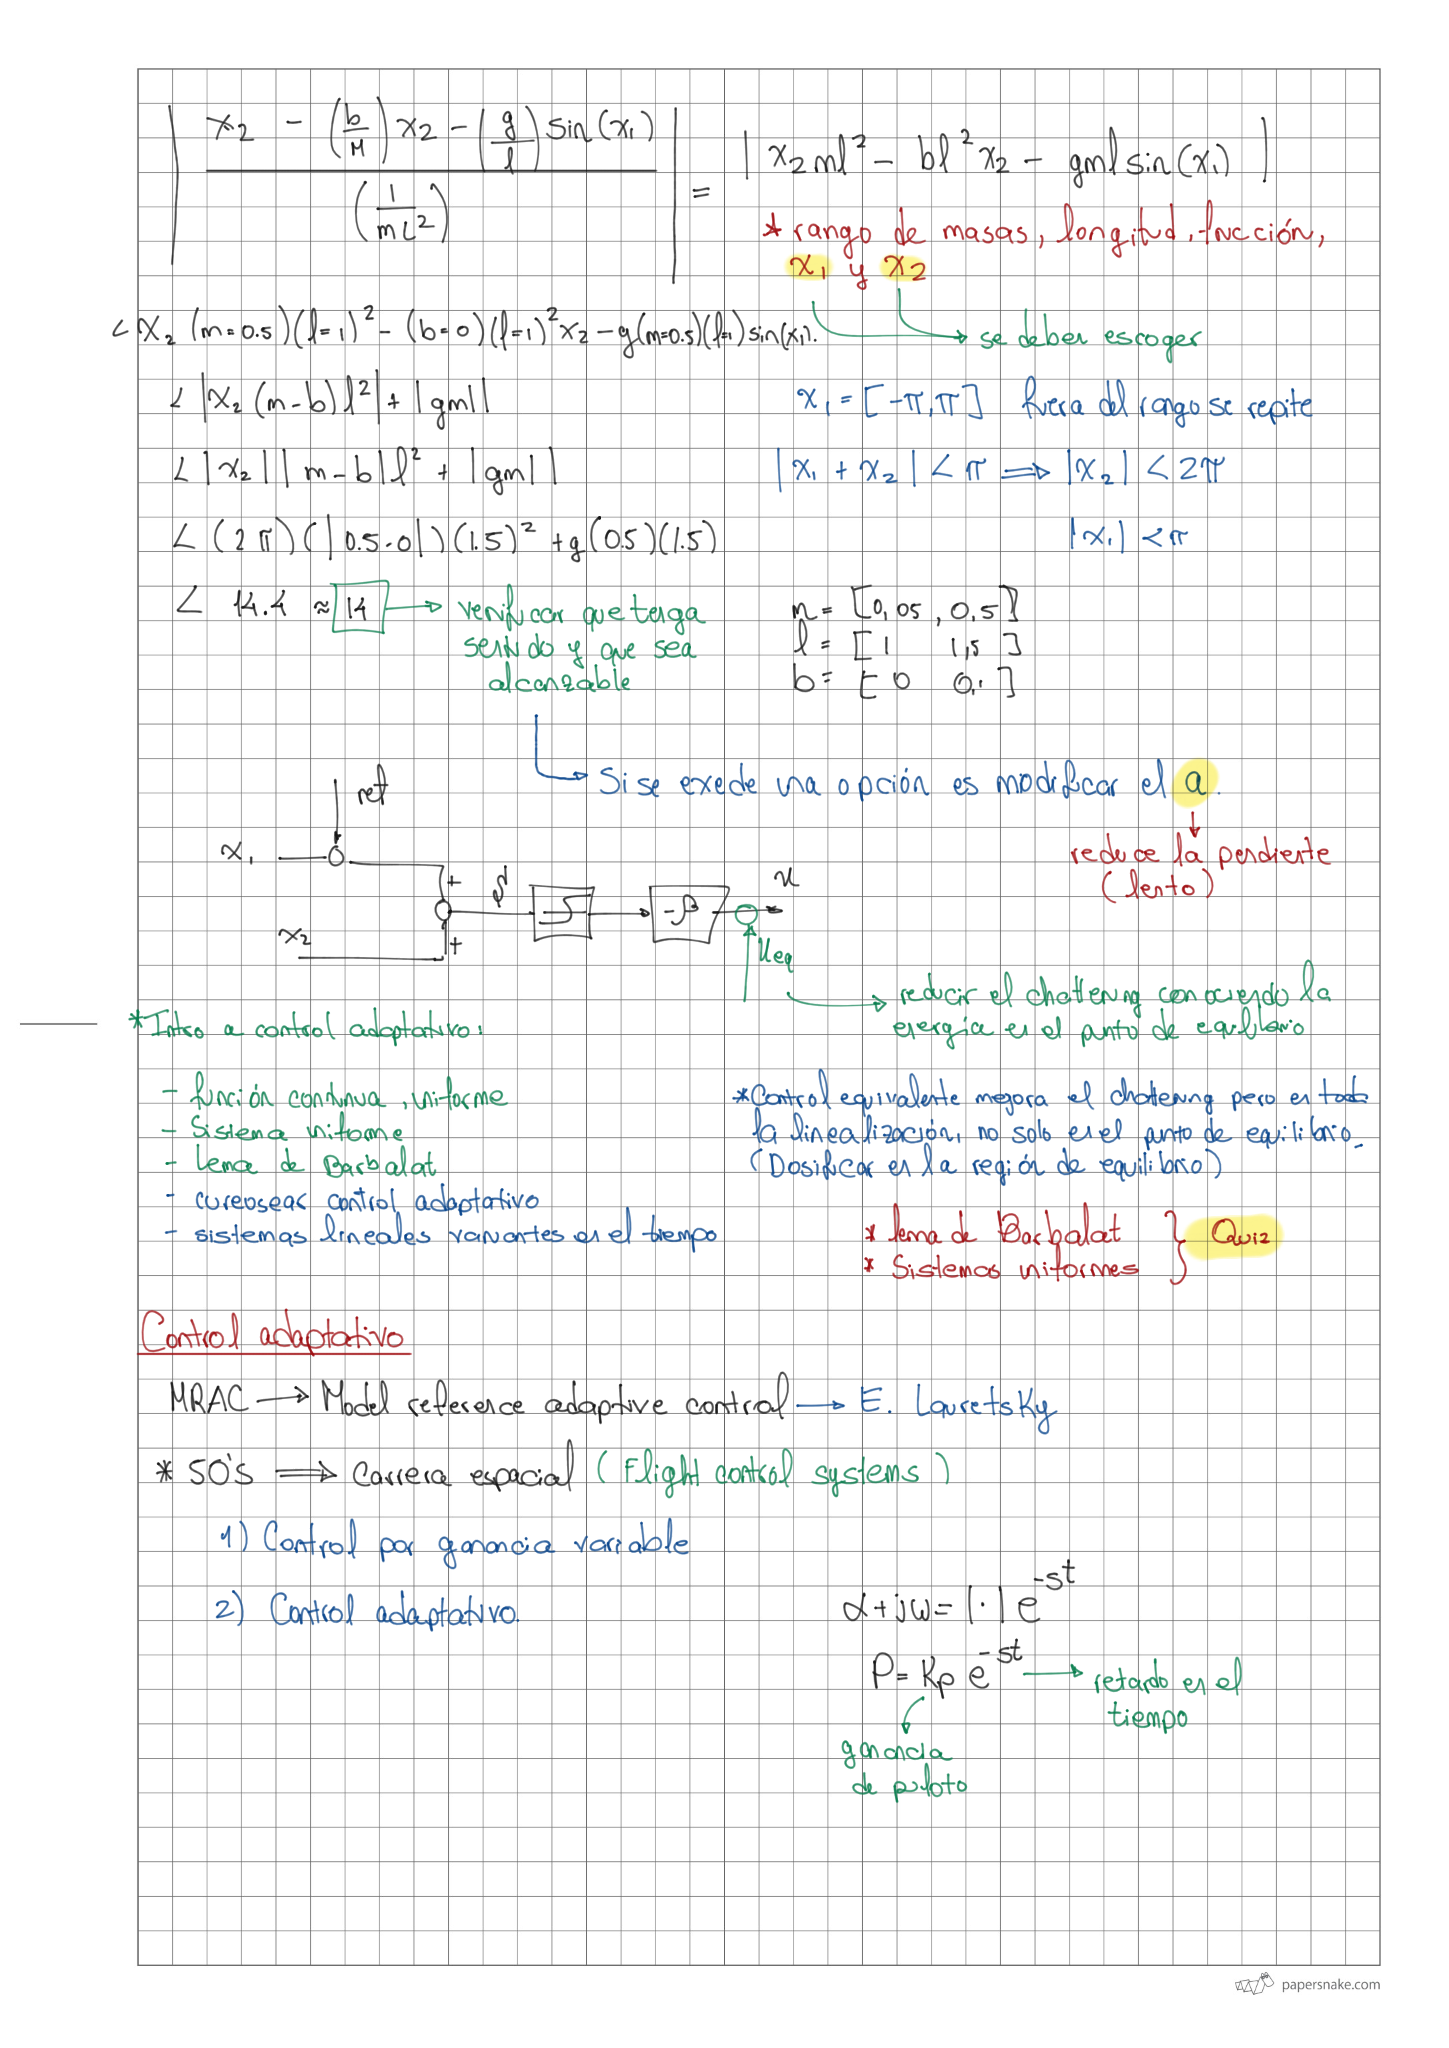 | x₂ - (b/M) x₂ - (g/l) sin(x₁) / (1/mL²) | = | x₂ml² - bl²x₂ - gml sin(x₁) |
* rango de masas, longitud, fricción,
x₁ y x₂
< x₂ (m=0.5)(l=1)² - (b=0)(l=1)²x₂ - g(m=0.5)(l=1) sin(x₁).
→ se deber escoger
< |x₂ (m-b) l²| + |gml|
x₁ = [-π, π] fuera del rango se repite
< |x₂| |m-b| l² + |gml|
|x₁ + x₂| < π ⟹ |x₂| < 2π
< (2π)(|0.5-0|)(1.5)² + g(0.5)(1.5)
|x₁| < π
< 14.4 ≈ 14 → verificar que tenga
sentido y que sea
alcanzable
m = [0,05 , 0,5]
l = [1 1,5]
b = [0 0,1]
→ Si se exede una opción es modificar el a.
↓
reduce la pendiente
(lento)
ref
x₁
+
x₂
+
-β
u
Ueq
→ reducir el chattering conociendo la
energía en el punto de equilibrio
* Intro a control adaptativo:
- función continua, uniforme
- Sistema uniforme
- Lema de Barbalat
- cureosear control adaptativo
- sistemas lineales variantes en el tiempo
* Control equivalente mejora el chattering pero en toda
la linealización, no solo en el punto de equilibrio.
(Dosificar en la región de equilibrio)
* lema de Barbalat } Quiz
* Sistemas uniformes
Control adaptativo
MRAC → Model reference adaptive control → E. Lauretsky
* 50's ⟹ Carrera espacial (Flight control systems)
1) Control por ganancia variable
2) Control adaptativo.
α+jω = |·| e^-st
P = Kp e^-st → retardo en el
tiempo
ganancia
de piloto
papersnake.com